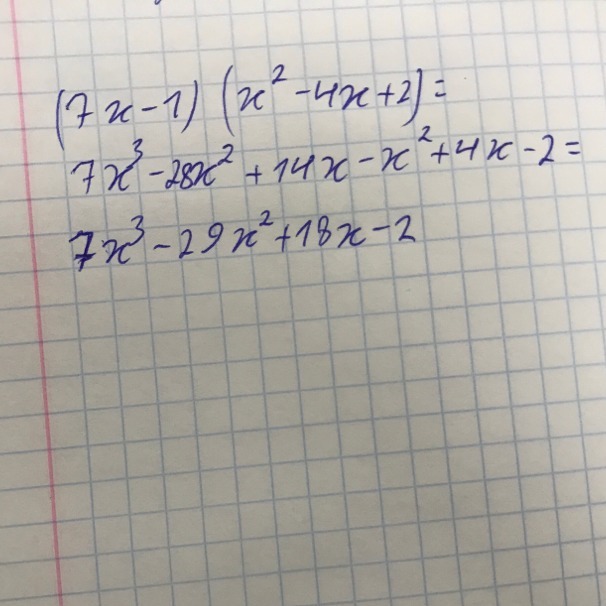 (7x-1)(x²-4x+2)=
7x³-28x²+14x-x²+4x-2=
7x³-29x²+18x-2